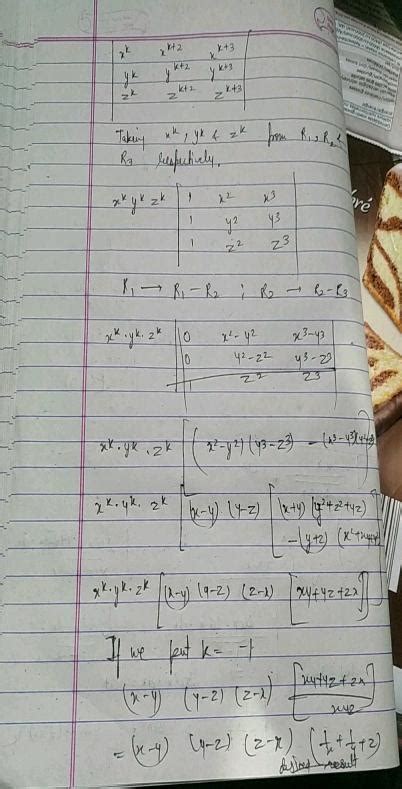 | x^k x^{k+2} x^{k+3} |
| y^k y^{k+2} y^{k+3} |
| z^k z^{k+2} z^{k+3} |
Taking x^k, y^k & z^k from R₁, R₂ &
R₃ respectively.
x^k y^k z^k | 1 x² x³ |
| 1 y² y³ |
| 1 z² z³ |
R₁ → R₁ − R₂ ; R₂ → R₂ − R₃
x^k · y^k · z^k | 0 x² − y² x³ − y³ |
| 0 y² − z² y³ − z³ |
| 1 z² z³ |
x^k · y^k · z^k [ (x² − y²) (y³ − z³) − (x³ − y³)(y² − z²) ]
x^k · y^k · z^k [ (x−y) (y−z) [ (x+y) (y² + z² + yz)
− (y+z) (x² + xy + y²) ] ]
x^k · y^k · z^k [ (x−y) (y−z) (z−x) [ xy + yz + zx ] ]
If we put k = −1
(x−y) (y−z) (z−x) [ xy + yz + zx / xyz ]
= (x−y) (y−z) (z−x) ( 1/x + 1/y + z )
desired result
ré